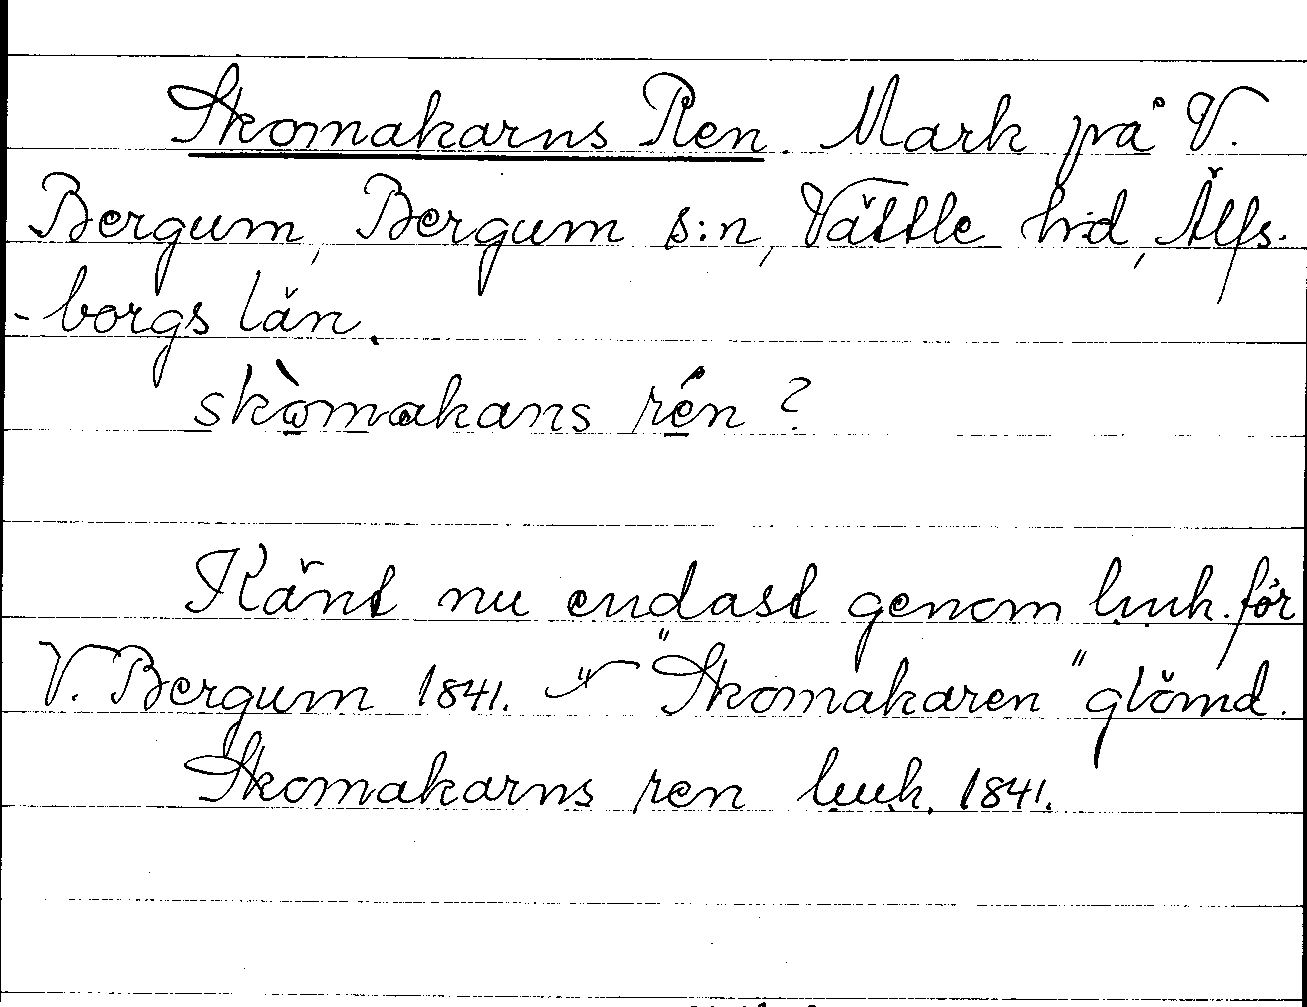 Skomakarns Ren. Mark på V.
Bergum, Bergum s:n, Vättle h:d, Älfs-
-borgs län.
skòmakans rén ?
Känt nu endast genom l.u.k. för
V. Bergum 1841. "Skomakaren" glömd.
Skomakarns ren l.u.k. 1841.